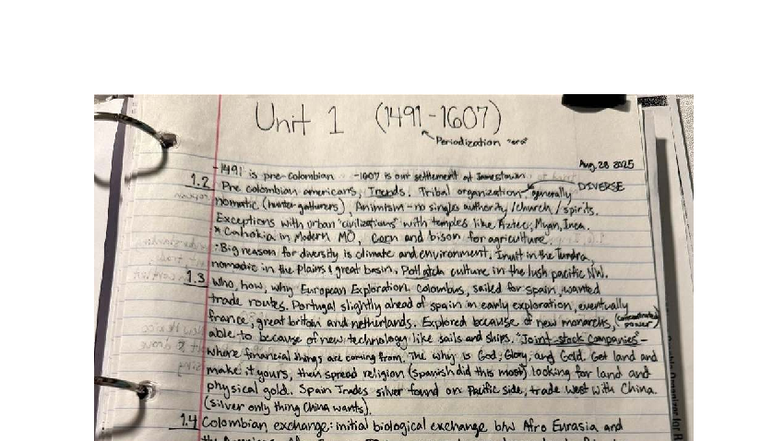 Unit 1 (1491-1607)
Periodization "era"
Aug. 28 2025
-1491 is pre-colombian -1607 is our settlement of Jamestown
1.2 Pre colombian americans, Tribal organization generally DIVERSE
Nomatic (hunter-gatherers), Animism - no single authority/church/spirits.
Exceptions with urban "civilizations" with temples like Aztec, Myan, Inca.
* Cahokia in Modern MO, Corn and bison for agriculture.
· Big reason for diversity is climate and environment, Inuit in the Tundra,
nomadic in the plains & great basin. Potlatch culture in the lush pacific NW.
1.3 Who, how, why European Exploration. Colombus, sailed for spain, wanted
trade routes. Portugal slightly ahead of spain in early exploration, eventually
france, great britain and netherlands. Explored because of new monarchs, (concentrated power)
able to because of new technology like sails and ships. "Joint-stock companies" -
where financial things are coming from. The why is God, Glory, and Gold. Get land and
make it yours, then spread religion (spanish did this most) looking for land and
physical gold. Spain Trades silver found on Pacific side, trade west with China
(silver only thing China wants).
1.4 Colombian exchange: initial biological exchange btw Afro Eurasia and